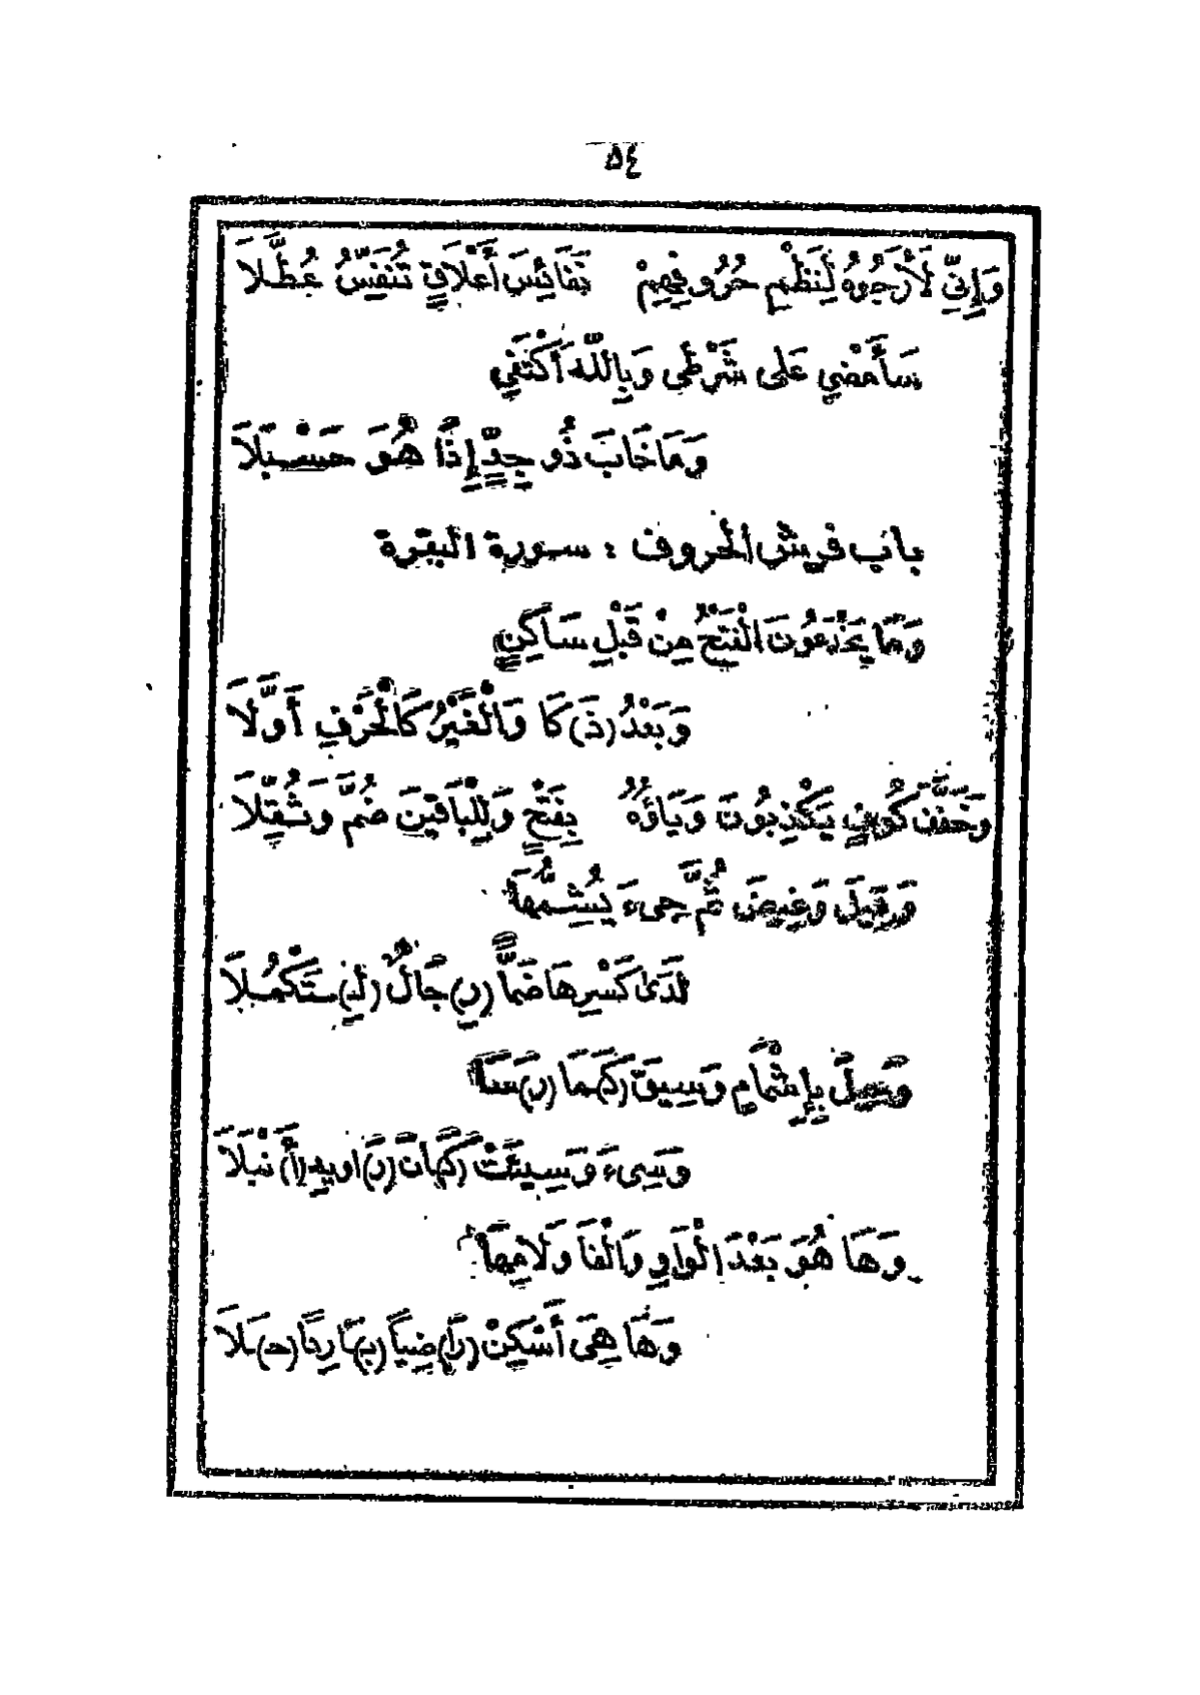 ٥٤
وَإِنِّي لَأَرْجُوهُ لِنَظْمِ حُرُوفِهِمْ نَفَائِسَ أَعْلَاقٍ تُنَفِّسُ عُطَّلَا
سَأَمْضِي عَلَى شَرْطِي وَبِاللَّهِ أَكْتَفِي
وَمَا خَابَ ذُو جِدٍّ إِذَا هُوَ حَسْبَلَا
باب فرش الحروف : سورة البقرة
وَمَا يَخْدَعُونَ الْفَتْحُ مِنْ قَبْلِ سَاكِنٍ
وَبَعْدُ (ذَ)كَا وَالْغَيْرُ كَالْحَرْفِ أَوَّلَا
وَخَفَّفَ كُوفٍ يَكْذِبُونَ وَيَاؤُهُ بِفَتْحٍ وَلِلْبَاقِينَ ضُمَّ وَثُقِّلَا
وَقِيلَ وَغِيضَ ثُمَّ جِىءَ يُشِمُّهَا
لَدَى كَسْرِهَا ضَمًّا (رِ)جَالٌ (لِ)تَكْمُلَا
وَحِيلَ بِإِشْمَامٍ وَسِيقَ (كَ)مَا (رَ)سَا
وَسِىءَ وَسِيئَتْ (كَ)انَ (رَ)اوِيهِ (أَ)نْبَلَا
وَهَا هُوَ بَعْدَ الْوَاوِ وَالْفَا وَلَامِهَا
وَهَا هِىَ أَسْكِنْ (رَ)اضِيًا (بَ)ارِدًا (حَ)لَا